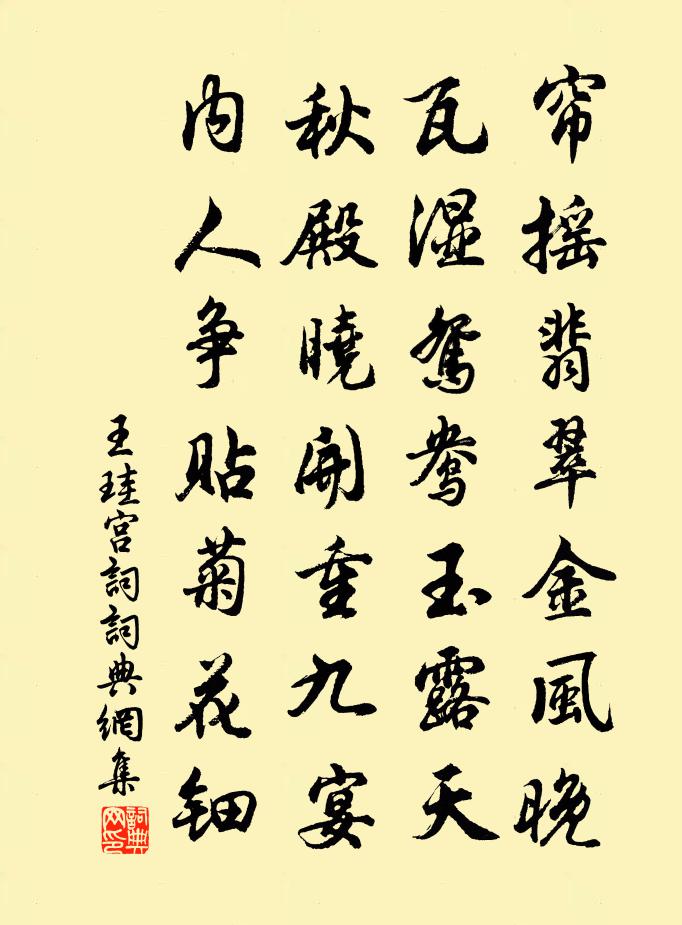 帘摇翡翠金風晚
瓦湿鸳鸯玉露天
秋殿曉開重九宴
内人争贴菊花钿
王珪宫詞詞典網集
詞典网印